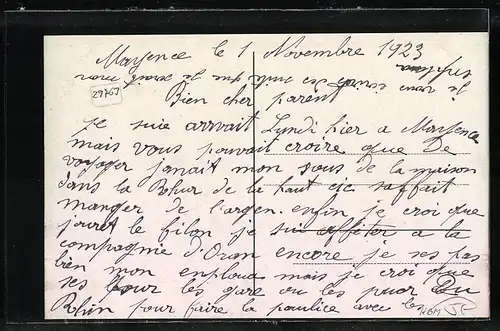 Mayence le 1 Novembre 1923
je vous
Bien cher parent
29767
je suie arrivait Lundi hier a Mayence
mais vous pouvait croire que De
voyager janait mon sous de la maison
dans la Rhur de la haut sic saffait
manger de l'argen. enfin je croi que
jouret le filon je suie affeter a la
compagnie d'Oran encore je ses pas
bien mon emploua mais je croi que
ses pour les gare ou les puor Du
Rhin pour faire la paulice avec les